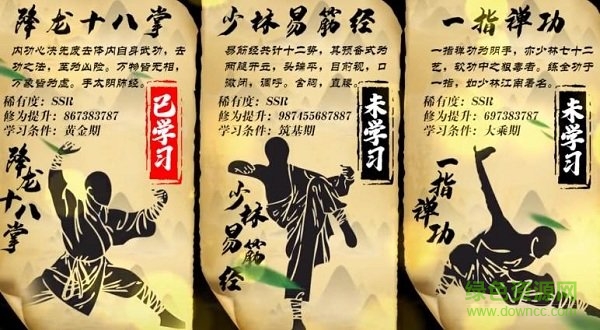 降龙十八掌
内功心决先废去降内自身武功，去
功之法，至为凶险。万物皆无相，
万象皆为虚。手太阴肺经。
稀有度：SSR
修为提升：867383787
学习条件：黄金期
已学习
降龙
十八掌
少林易筋经
易筋经共计十二势，其预备式为
两腿开立，头端平，目前视，口
微闭，调呼。含胸，直腰。
稀有度：SSR
修为提升：987455687887
学习条件：筑基期
未学习
少林易筋经
一指禅功
一指禅功为阴手，亦少林七十二
艺，软功中之狠毒者。练全功于
一指，如少林江南著名。
稀有度：SSR
修为提升：697383787
学习条件：大乘期
未学习
一指禅功
绿色资源网
www.downcc.com